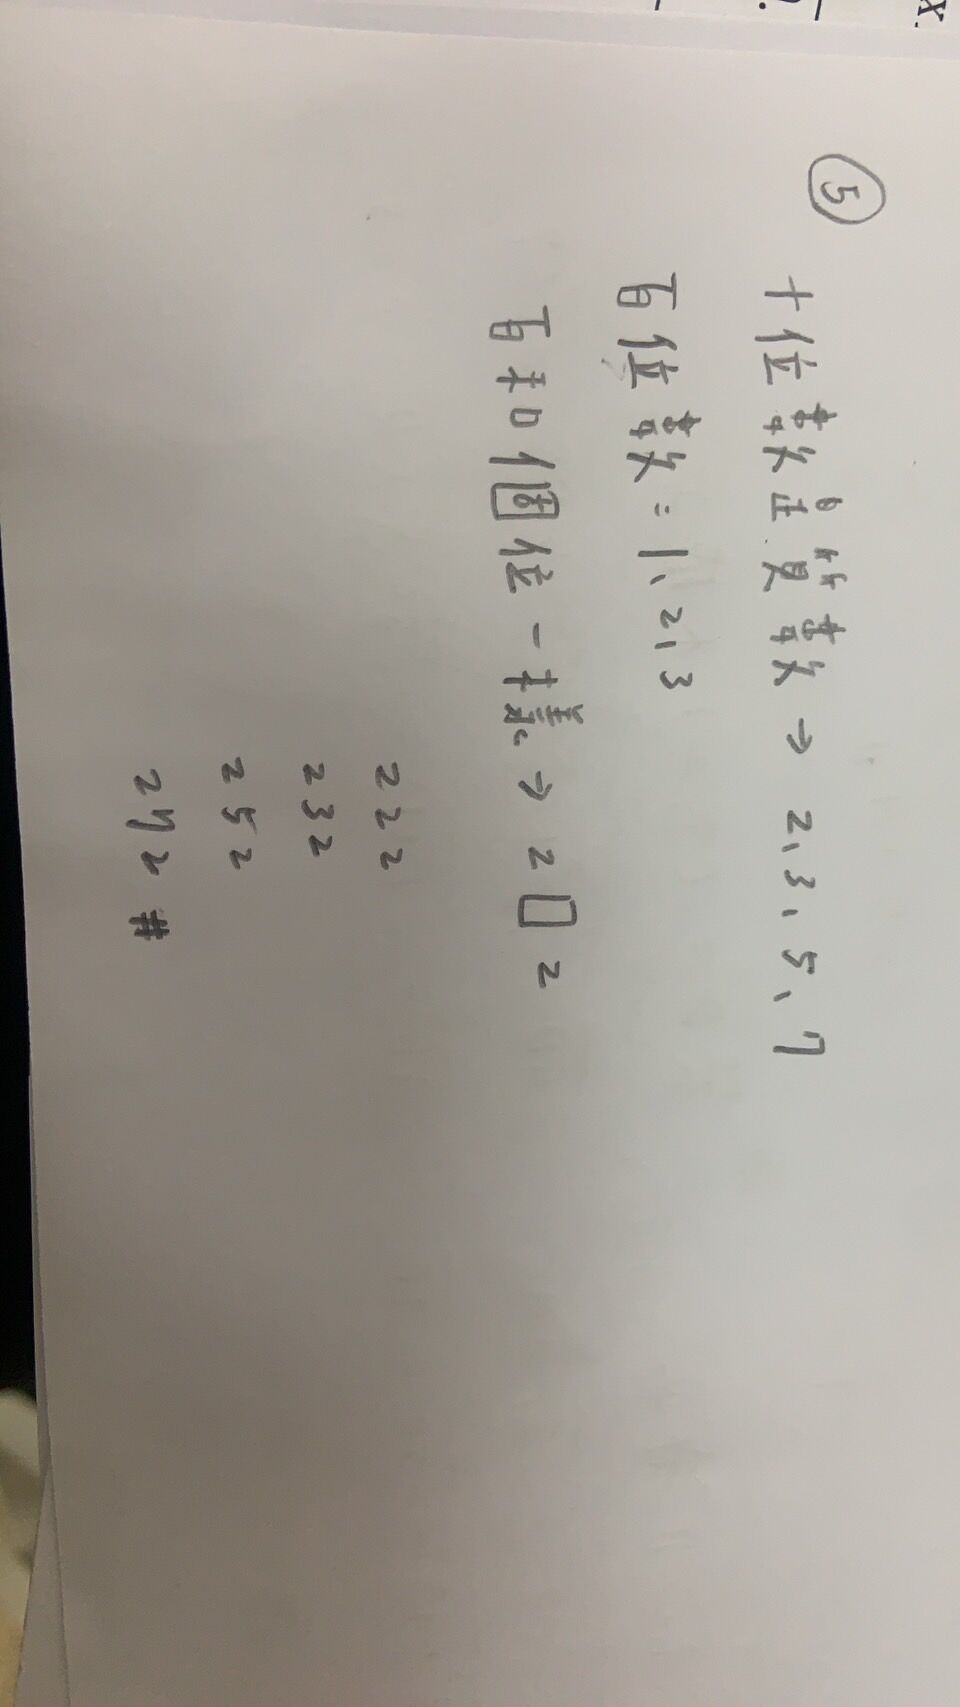 ⑤
十位數是質數 → 2、3、5、7
百位數 = 1、2、3
百和個位一樣 → 2□2
222
232
252
272 #